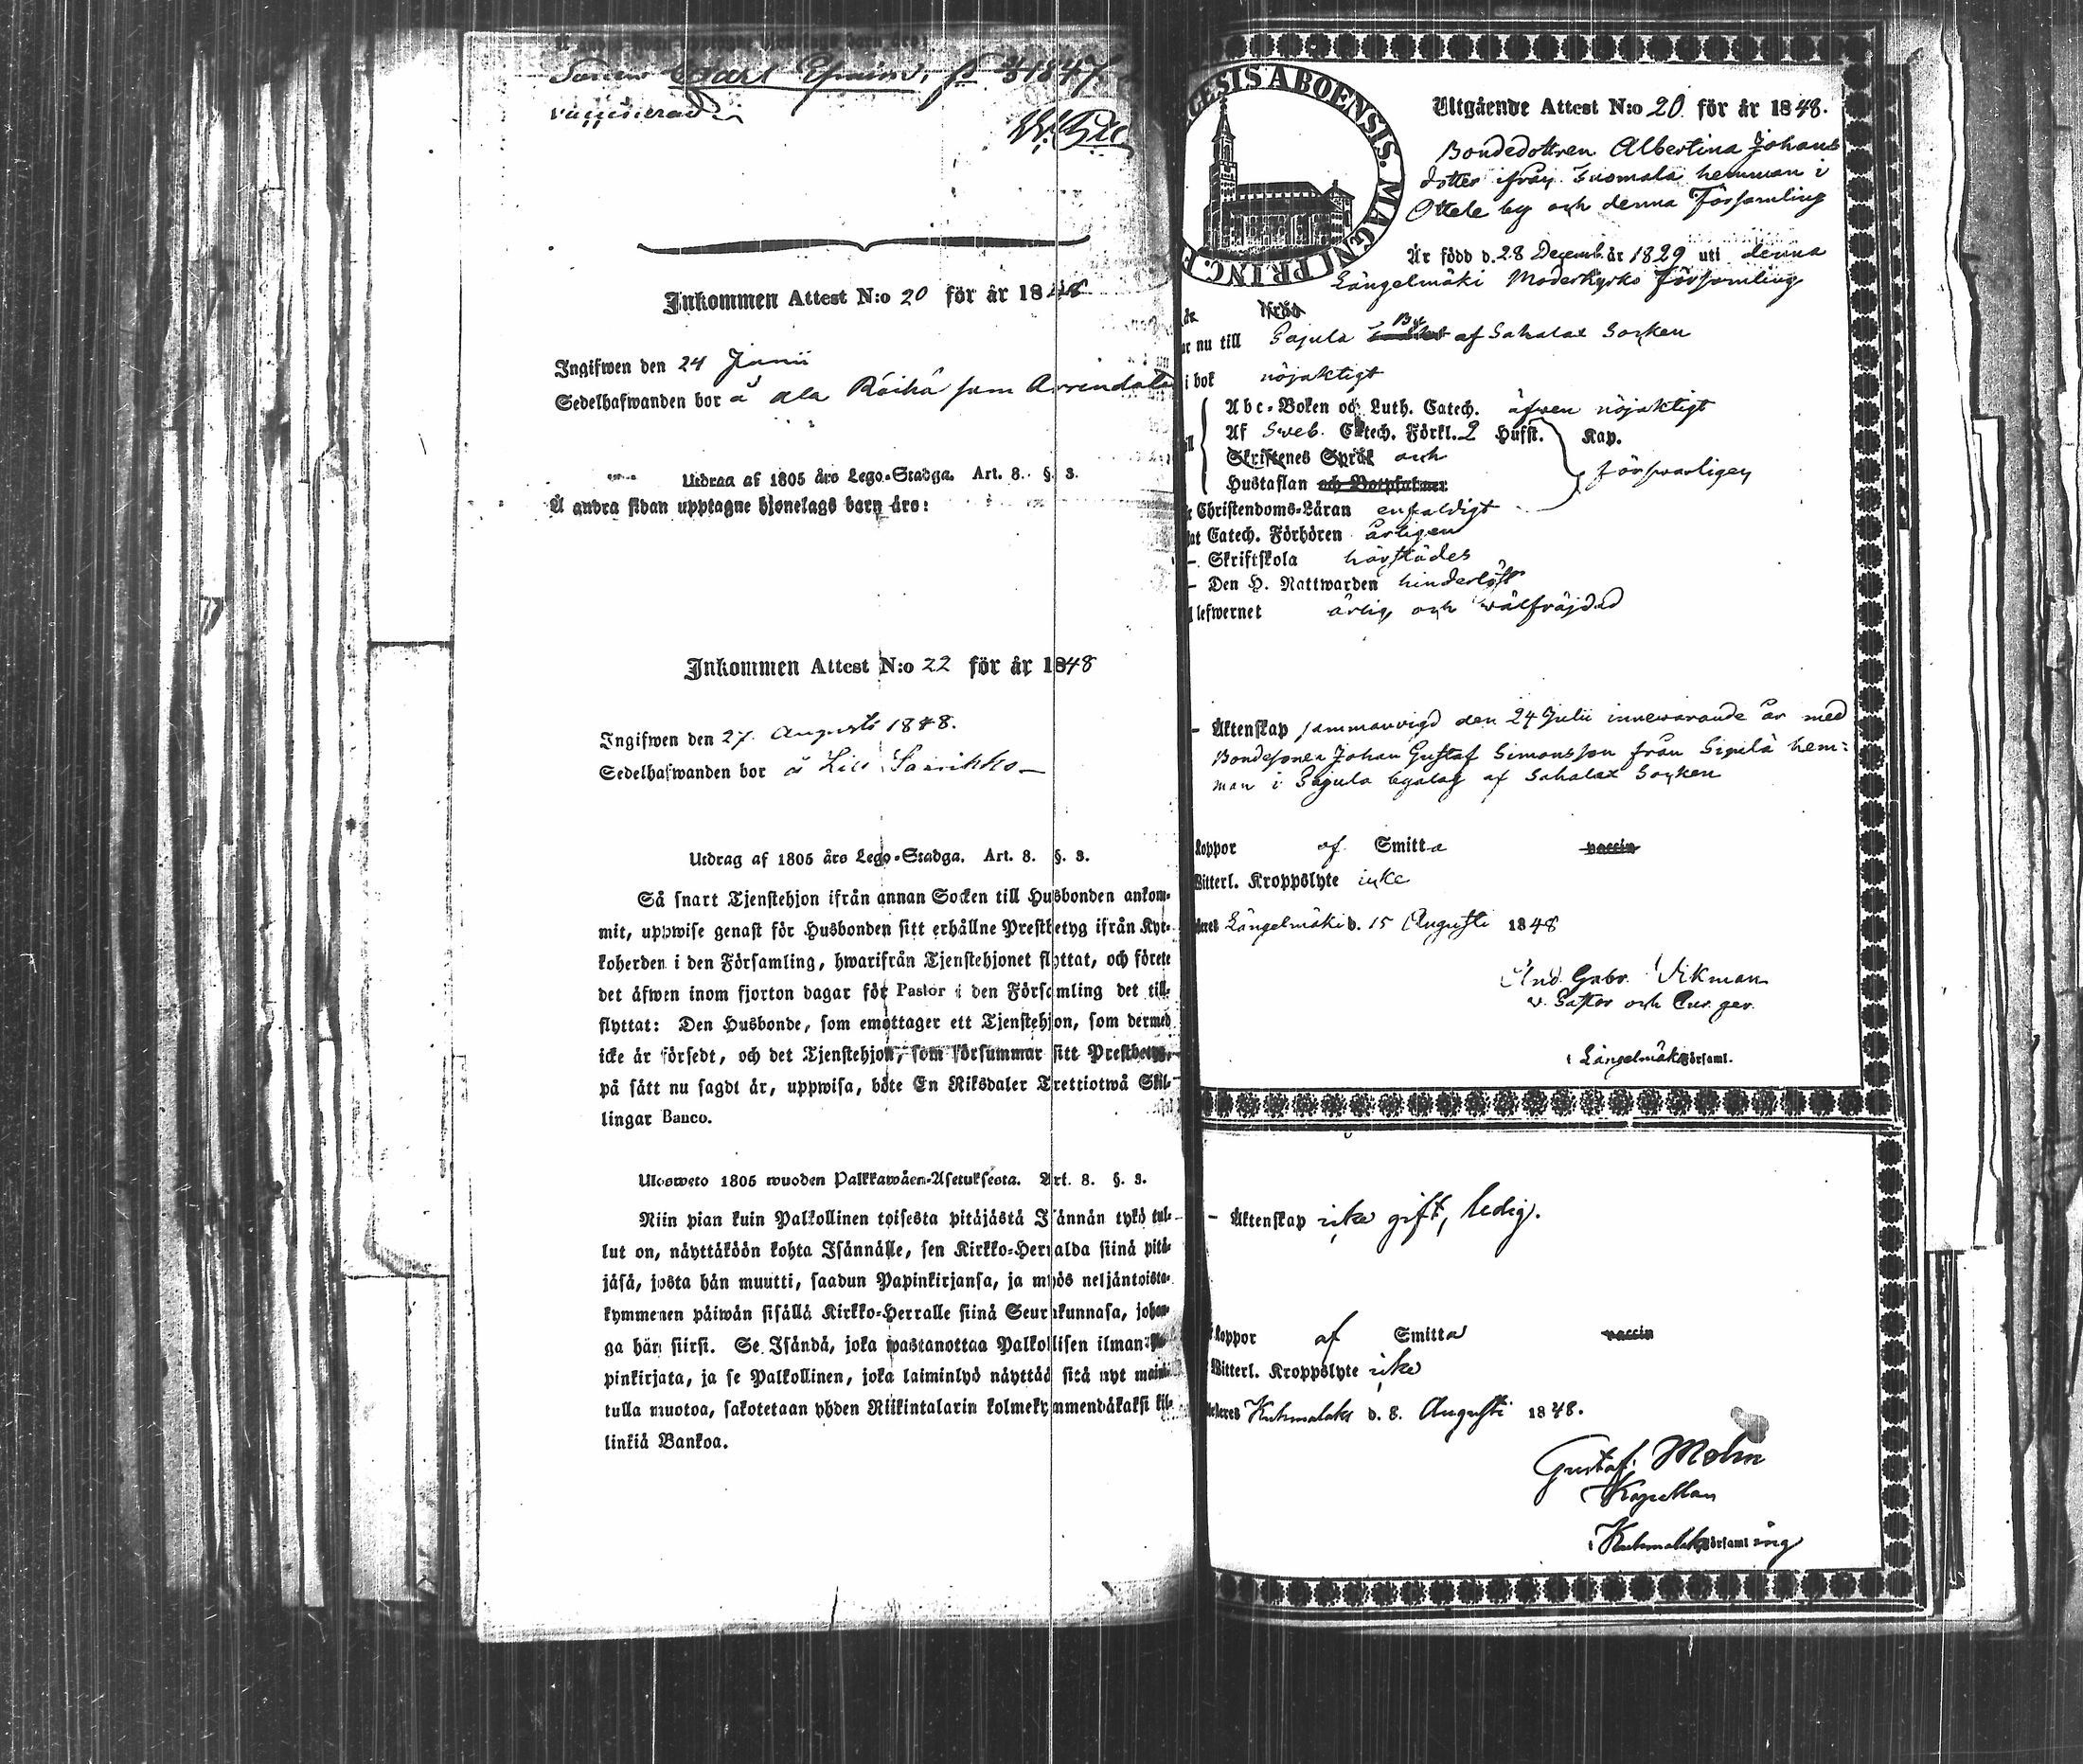 Sonen Carl Efraim, f. 3/3 1847
vaccinerad
Inkommen Attest N:o 20 för år 1848
Ingifwen den 24 Junii
Sedelhafwanden bor å Ala Röihö som Arrendator
Utdrag af 1805 års Lego-Stadga. Art. 8. §. 3.
Å andra sidan upptagne hjonelags barn äro:
Inkommen Attest N:o 22 för år 1848
Ingifwen den 27. Augusti 1848.
Sedelhafwanden bor å Lill Sarikko
Utdrag af 1805 års Lego-Stadga. Art. 8. §. 3.
Så snart Tjenstehjon ifrån annan Socken till Husbonden ankom-
mit, uppwise genast för Husbonden sitt erhållne Prestbetyg ifrån Kyr-
koherden i den Församling, hwarifrån Tjenstehjonet flyttat, och förete
det äfwen inom fjorton dagar för Pastor i den Församling det till-
flyttat: Den Husbonde, som emottager ett Tjenstehjon, som dermed
icke är försedt, och det Tjenstehjon, som försummar sitt Prestbetyg,
på sätt nu sagdt är, uppwisa, böte En Riksdaler Trettiotwå Skil-
lingar Banco.
Ulosweto 1805 wuoden Palkkawäen-Asetuksesta. Art. 8. §. 3.
Niin pian kuin Palkollinen toisesta pitäjästä Isännän tykö tul-
lut on, näyttäköön kohta Isännälle, sen Kirkko-Herralda siinä pitä-
jäsä, josta hän muutti, saadun Papinkirjansa, ja myös neljäntoista-
kymmenen päiwän sisällä Kirkko-Herralle siinä Seurakunnasa, johon-
ga hän siirsi. Se Isändä, joka wastanottaa Palkollisen ilman Pa-
pinkirjata, ja se Palkollinen, joka laiminlyö näyttää sitä nyt mainit-
tulla muotoa, sakotetaan yhden Riikintalarin kolmekymmendäkaksi kil-
linkiä Bankoa.
ECESIS ABOENSIS. MAGNI PRINC. F
Utgående Attest N:o 20. för år 1848.
Bondedottren Albertina Johans
dotter ifrån Suomala hemman i
Ottele by och denna Församling
Är född d. 28 Decemb. år 1829 uti denna
Längelmäki Moderkyrko Församling
ar nu till Pajula By af Sahalax Socken
i bok nöjaktigt
Abc-Boken och Luth. Catech. äfven nöjaktigt
Af Sveb. Catech. Förkl. 2 Hufst. Kap.
Skriftenes Språk och försvarligen
Hustaflan och Botpsalmer
Christendoms-Läran enfaldigt
at Catech. Förhören årligen
- Skriftskola härstädes
- Den H. Nattwarden hinderlöst
lefwernet ärlig och wälfräjdad
- Äktenskap sammanvigd den 24 Julii innewarande år med
Bondesonen Johan Gustaf Simonsson från Sipilä hem=
man i Pajula byalag af Sahalax Socken
koppor af Smitta vaccin
Witterl. Kroppslyte icke
Längelmäki d. 15 Augusti 1848
And. Gabr. Wikman
v. Pastor och Cur. ger.
i Längelmäki Församl.
- Äktenskap icke gift, ledig.
koppor af Smitta vaccin
Witterl. Kroppslyte icke
Kuhmalaks d. 8. Augusti 1848.
Gustaf Molin
Kapellan
i Kuhmalaks Församling